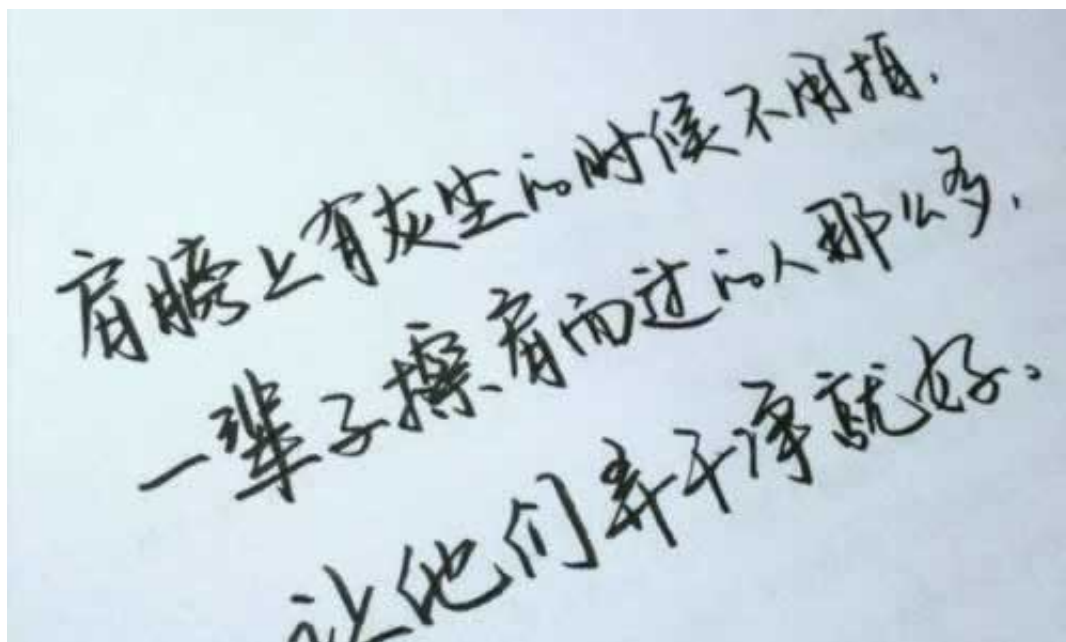 肩膀上有灰尘的时候不用拍.
一辈子擦肩而过的人那么多.
让他们弄干净就好。